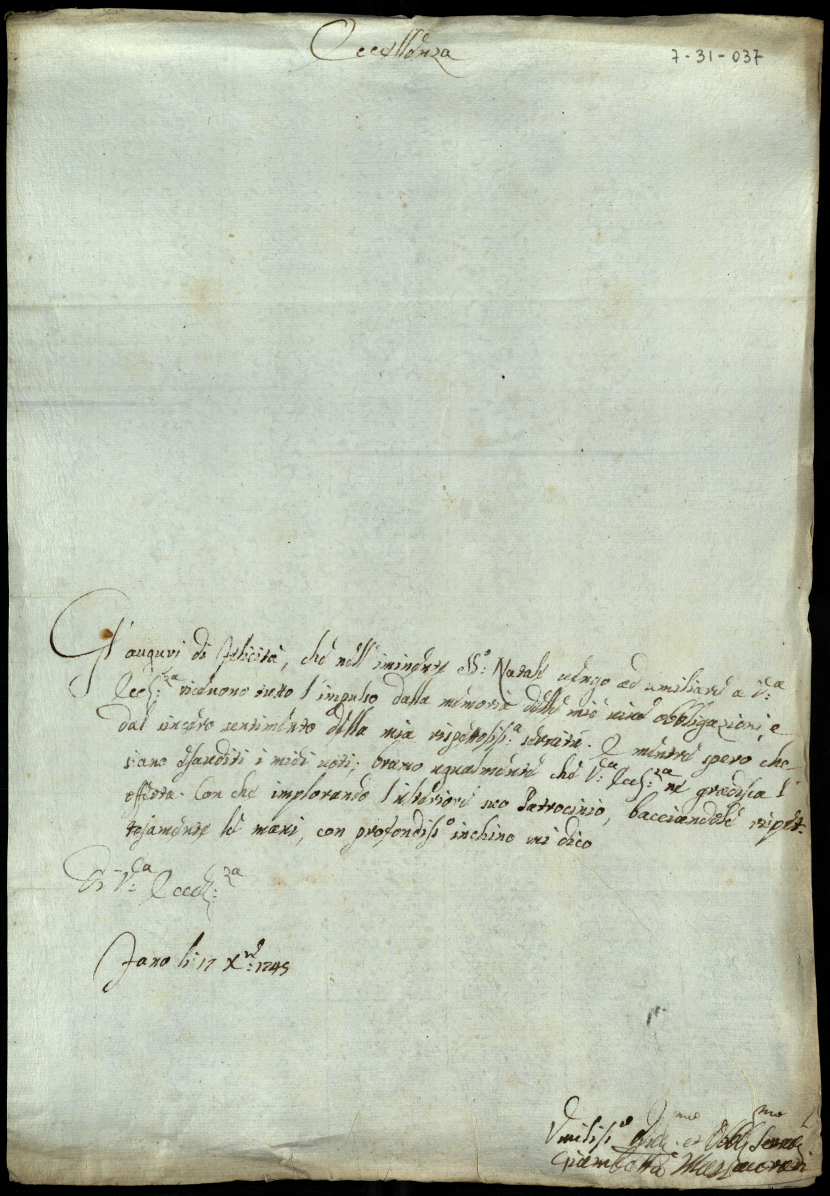 Eccellenza
7-31-037
Gl'auguri di felicità, che nell'iminente SS.o Natale vengo ad umiliare a V.a
Eccell.za ricevono tutto l'impulso dalla memoria delle mie obbligazioni, e
dal sincero sentimento della mia rispettosiss.a servitù. E mentre spero che
siano esauditi i miei voti; bramo ugualmente che V.a Eccell.za ne gradisca l'
offerta. Con che implorando l'ulteriore suo Patrocinio, bacciandole rispet-
tosamente le mani, con profondiss.o inchino mi dico
Di V.a Eccell.za
Fano li 17 Xre 1745
Umiliss.o et Obbl.mo
Giambatta